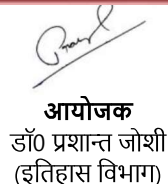 आयोजक
डॉ0 प्रशान्त जोशी
(इतिहास विभाग)